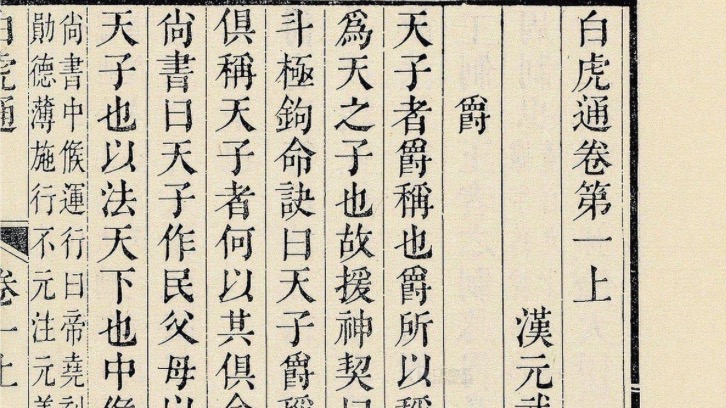 白虎通卷第一上
漢元武
爵
天子者爵稱也爵所以稱
爲天之子也故援神契曰
斗極鉤命訣曰天子爵稱
俱稱天子者何以其俱命
尚書曰天子作民父母以
天子也以法天下也中候
尚書中候運行曰帝堯刻
勛德薄施行不元注元善
白虎通
卷一上